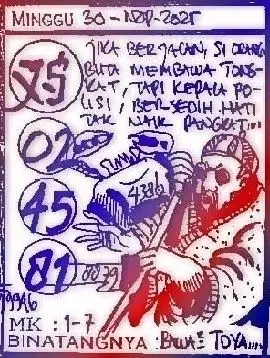 MINGGU 30-NOP-2025
JIKA BERJALAN, SI ORANG
BUTA MEMBAWA TONG-
KAT, TAPI KEPALA PO-
LISI, BERSEDIH HATI
TAK NAIK PANGKAT...
75
02
45
81
4386
0079
MK : 1-7
BINATANGNYA : BAWA² TOYA....